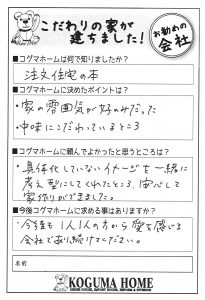 こだわりの家が
建ちました!
お勧めの
会社
■コグマホームは何で知りましたか?
注文住宅の本
■コグマホームに決めたポイントは?
・家の雰囲気が好みだった
・中味にこだわっているところ
■コグマホームに頼んでよかったと思うところは?
・具体化していないイメージを一緒に
考え型にしてくれたところ、安心して
家作りができました。
■今後コグマホームに求める事はありますか?
今後も1人1人の方から愛を感じる
会社であり続けてください。
名前
KOGUMA HOME